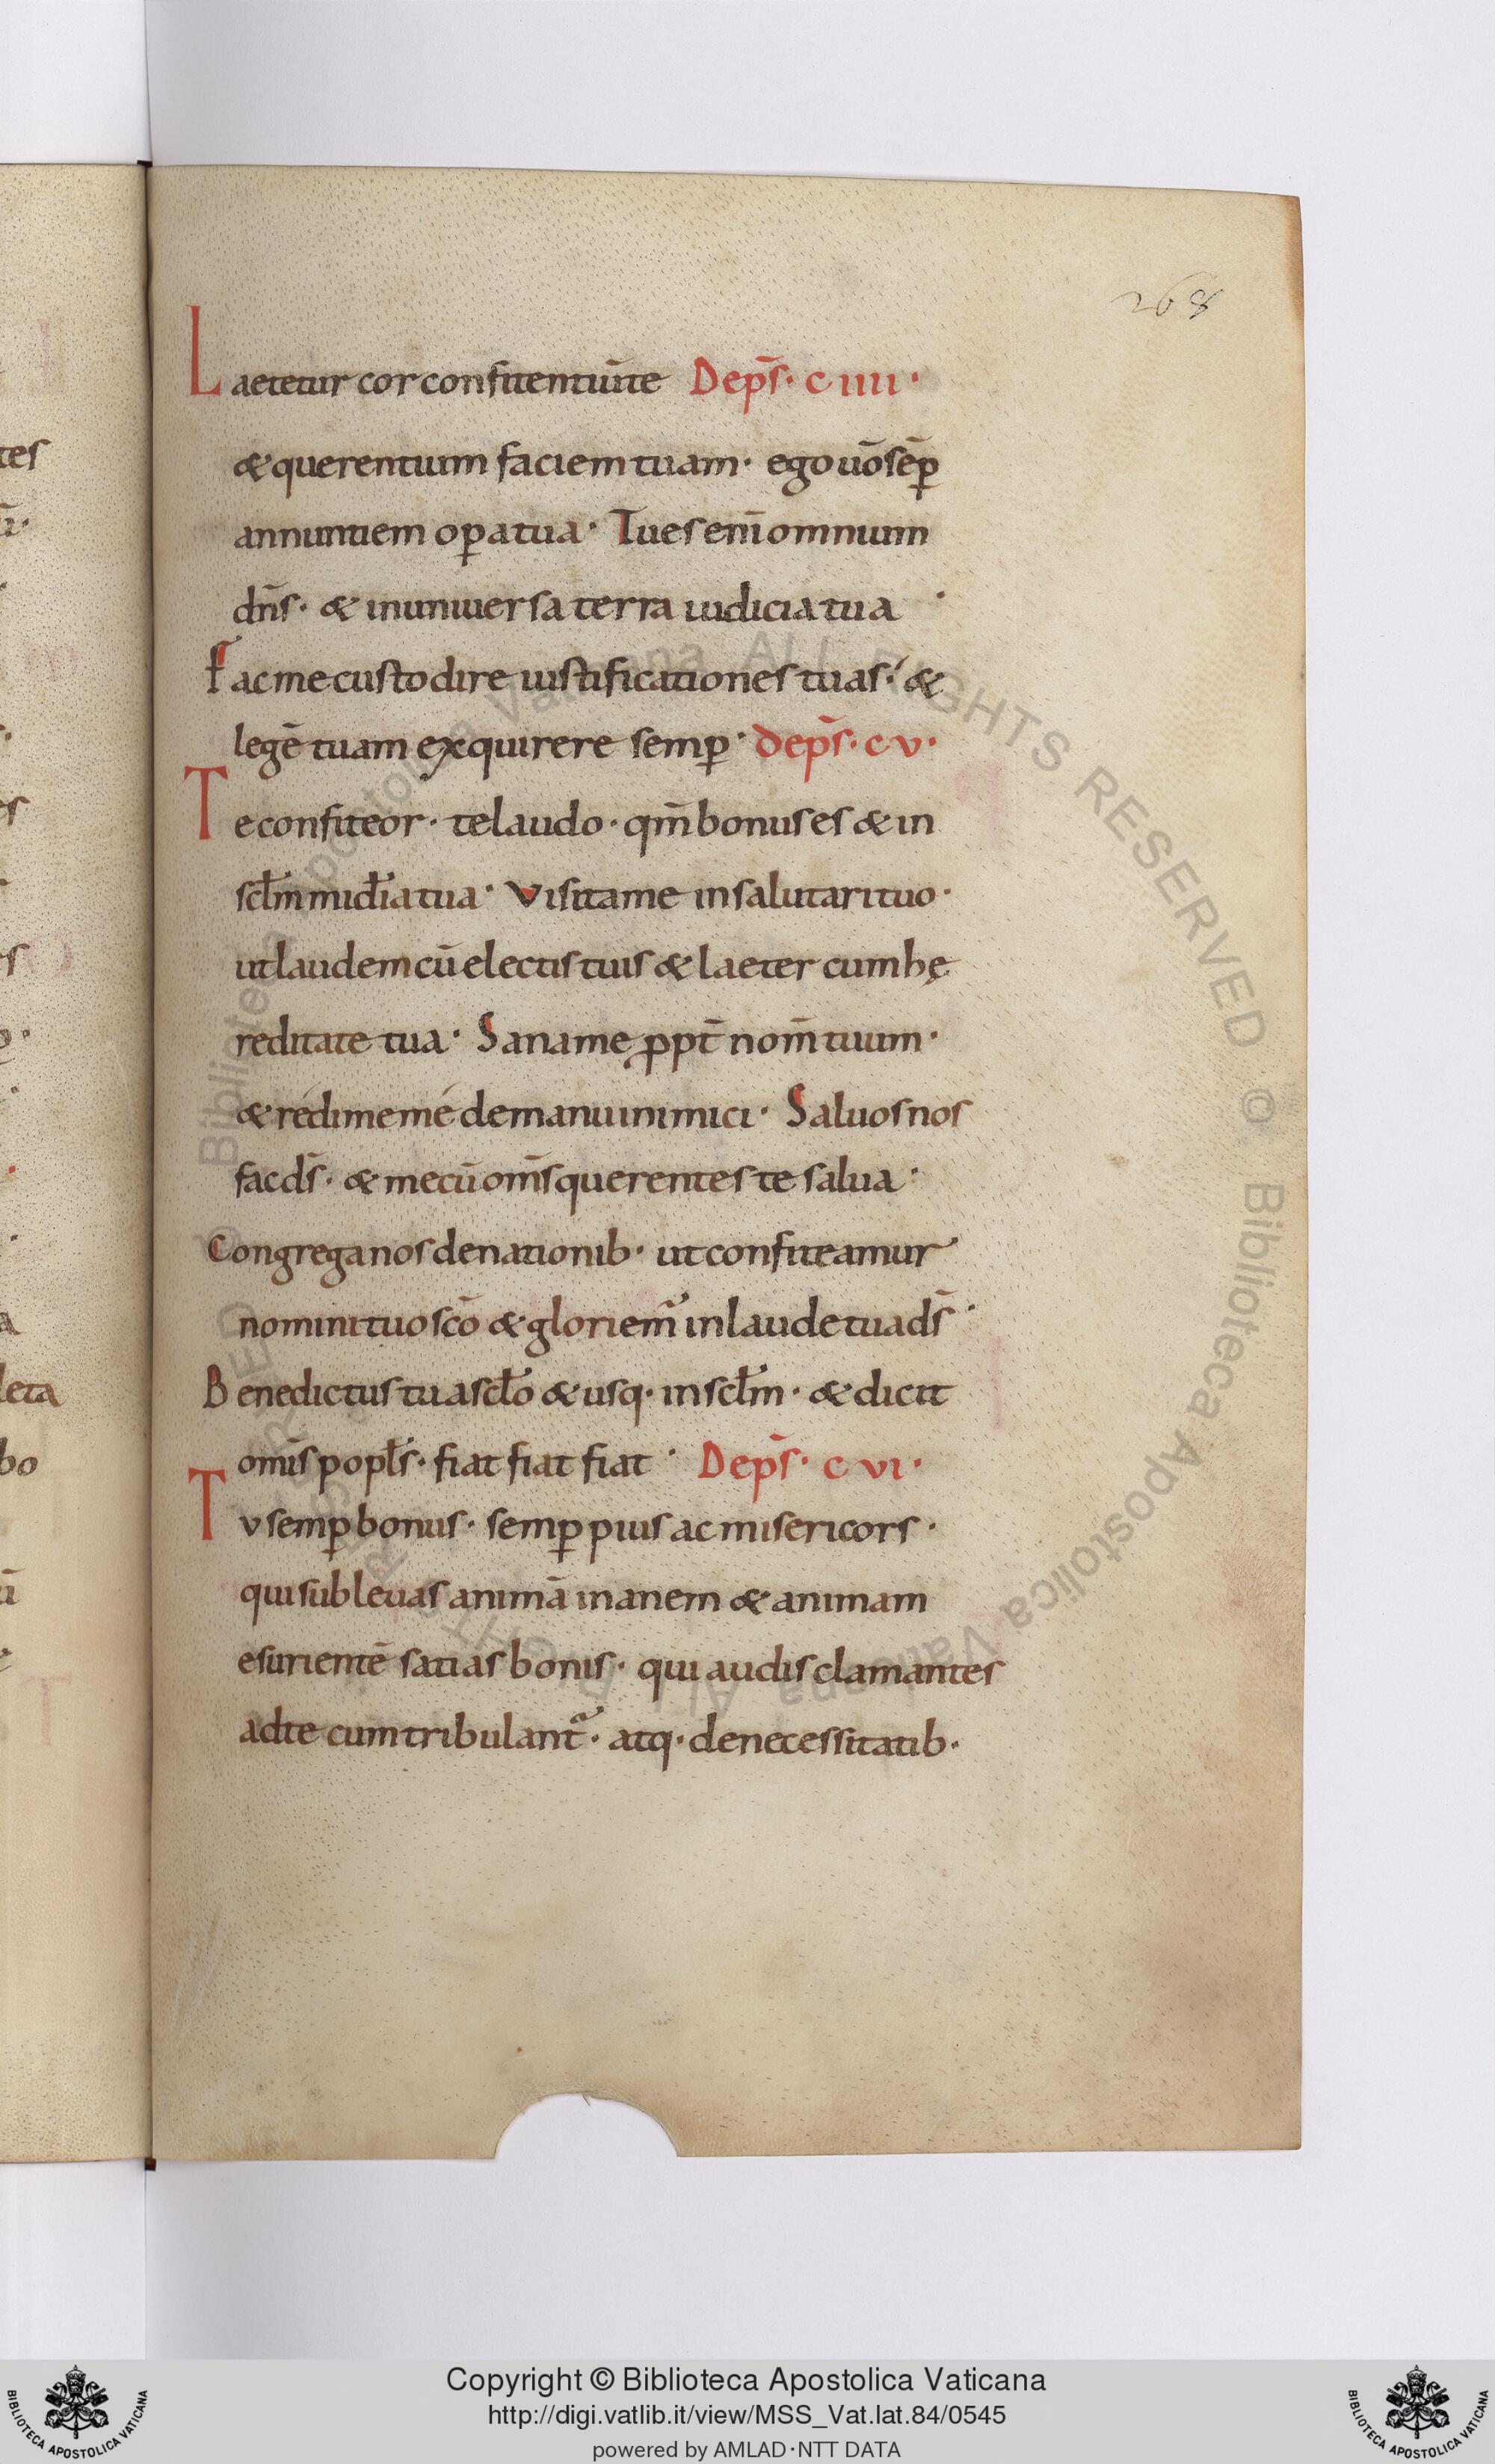 268
Laetetur cor confitentiū te Dep̄s · C IIII ·
& querentium faciem tuam · ego uō sēp̱
annuntiem op̱a tua · Tu es enī omnium
dn̄s · & in uniuersa terra iudicia tua ·
Fac me custodire iustificationes tuas · &
legē tuam exquirere semp̱ · Dep̄s · C V ·
Te confiteor · te laudo · qm̄ bonus es & in
scłm midīa tua · Visita me in salutari tuo ·
ut laudem cū electis tuis & laeter cum hę
reditate tua · Sana me ꝓpt̄ nom̄ tuum ·
& rédime mé de manu inimici · Saluos nos
fac ds̄ · & mecū om̄s querentes te salua ·
Congrega nos de nationib · ut confiteamur
nomini tuo scō & gloriem̄ in laude tua ds̄ ·
Benedictus tu a scło & usq · in scłm · & dicit
omīs popłs · fiat fiat fiat · Dep̄s · C VI ·
Tu semp̱ bonus · semp̱ pius ac misericors ·
qui subleuas animā inanem & animam
esurientē satias bonis · qui audis clamantes
ad te cum tribulant̄ · atq · de necessitatib ·
tes
es
leta
bo
Biblioteca Apostolica Vaticana ALL RIGHTS RESERVED ©
Copyright © Biblioteca Apostolica Vaticana
http://digi.vatlib.it/view/MSS_Vat.lat.84/0545
powered by AMLAD·NTT DATA
BIBLIOTECA APOSTOLICA VATICANA
BIBLIOTECA APOSTOLICA VATICANA